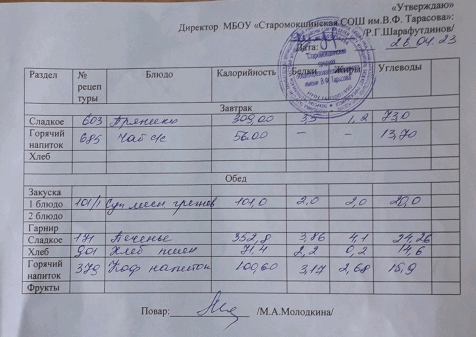 «Утверждаю»
Директор МБОУ «Старомокшинская СОШ им.В.Ф. Тарасова»:
/Р.Г.Шарафутдинов/
Дата: 26.04.23
Раздел № рецептуры Блюдо Калорийность Белки Жиры Углеводы
Завтрак
Сладкое 603 Пряники 309,00 3,5 1,2 73,0
Горячий напиток 685 Чай с/с 56.00 – – 13,70
Хлеб
Обед
Закуска
1 блюдо 101/1 Суп 101,0 2,0 2,0 20,0
2 блюдо
Гарнир
Сладкое 171 Печенье 352,8 3,86 4,1 24,26
Хлеб 901 Хлеб пшен 71,4 2,2 0,2 14,6
Горячий напиток 379 Коф напиток 100,60 3,17 2,68 15,9
Фрукты
Повар: /М.А.Молодкина/